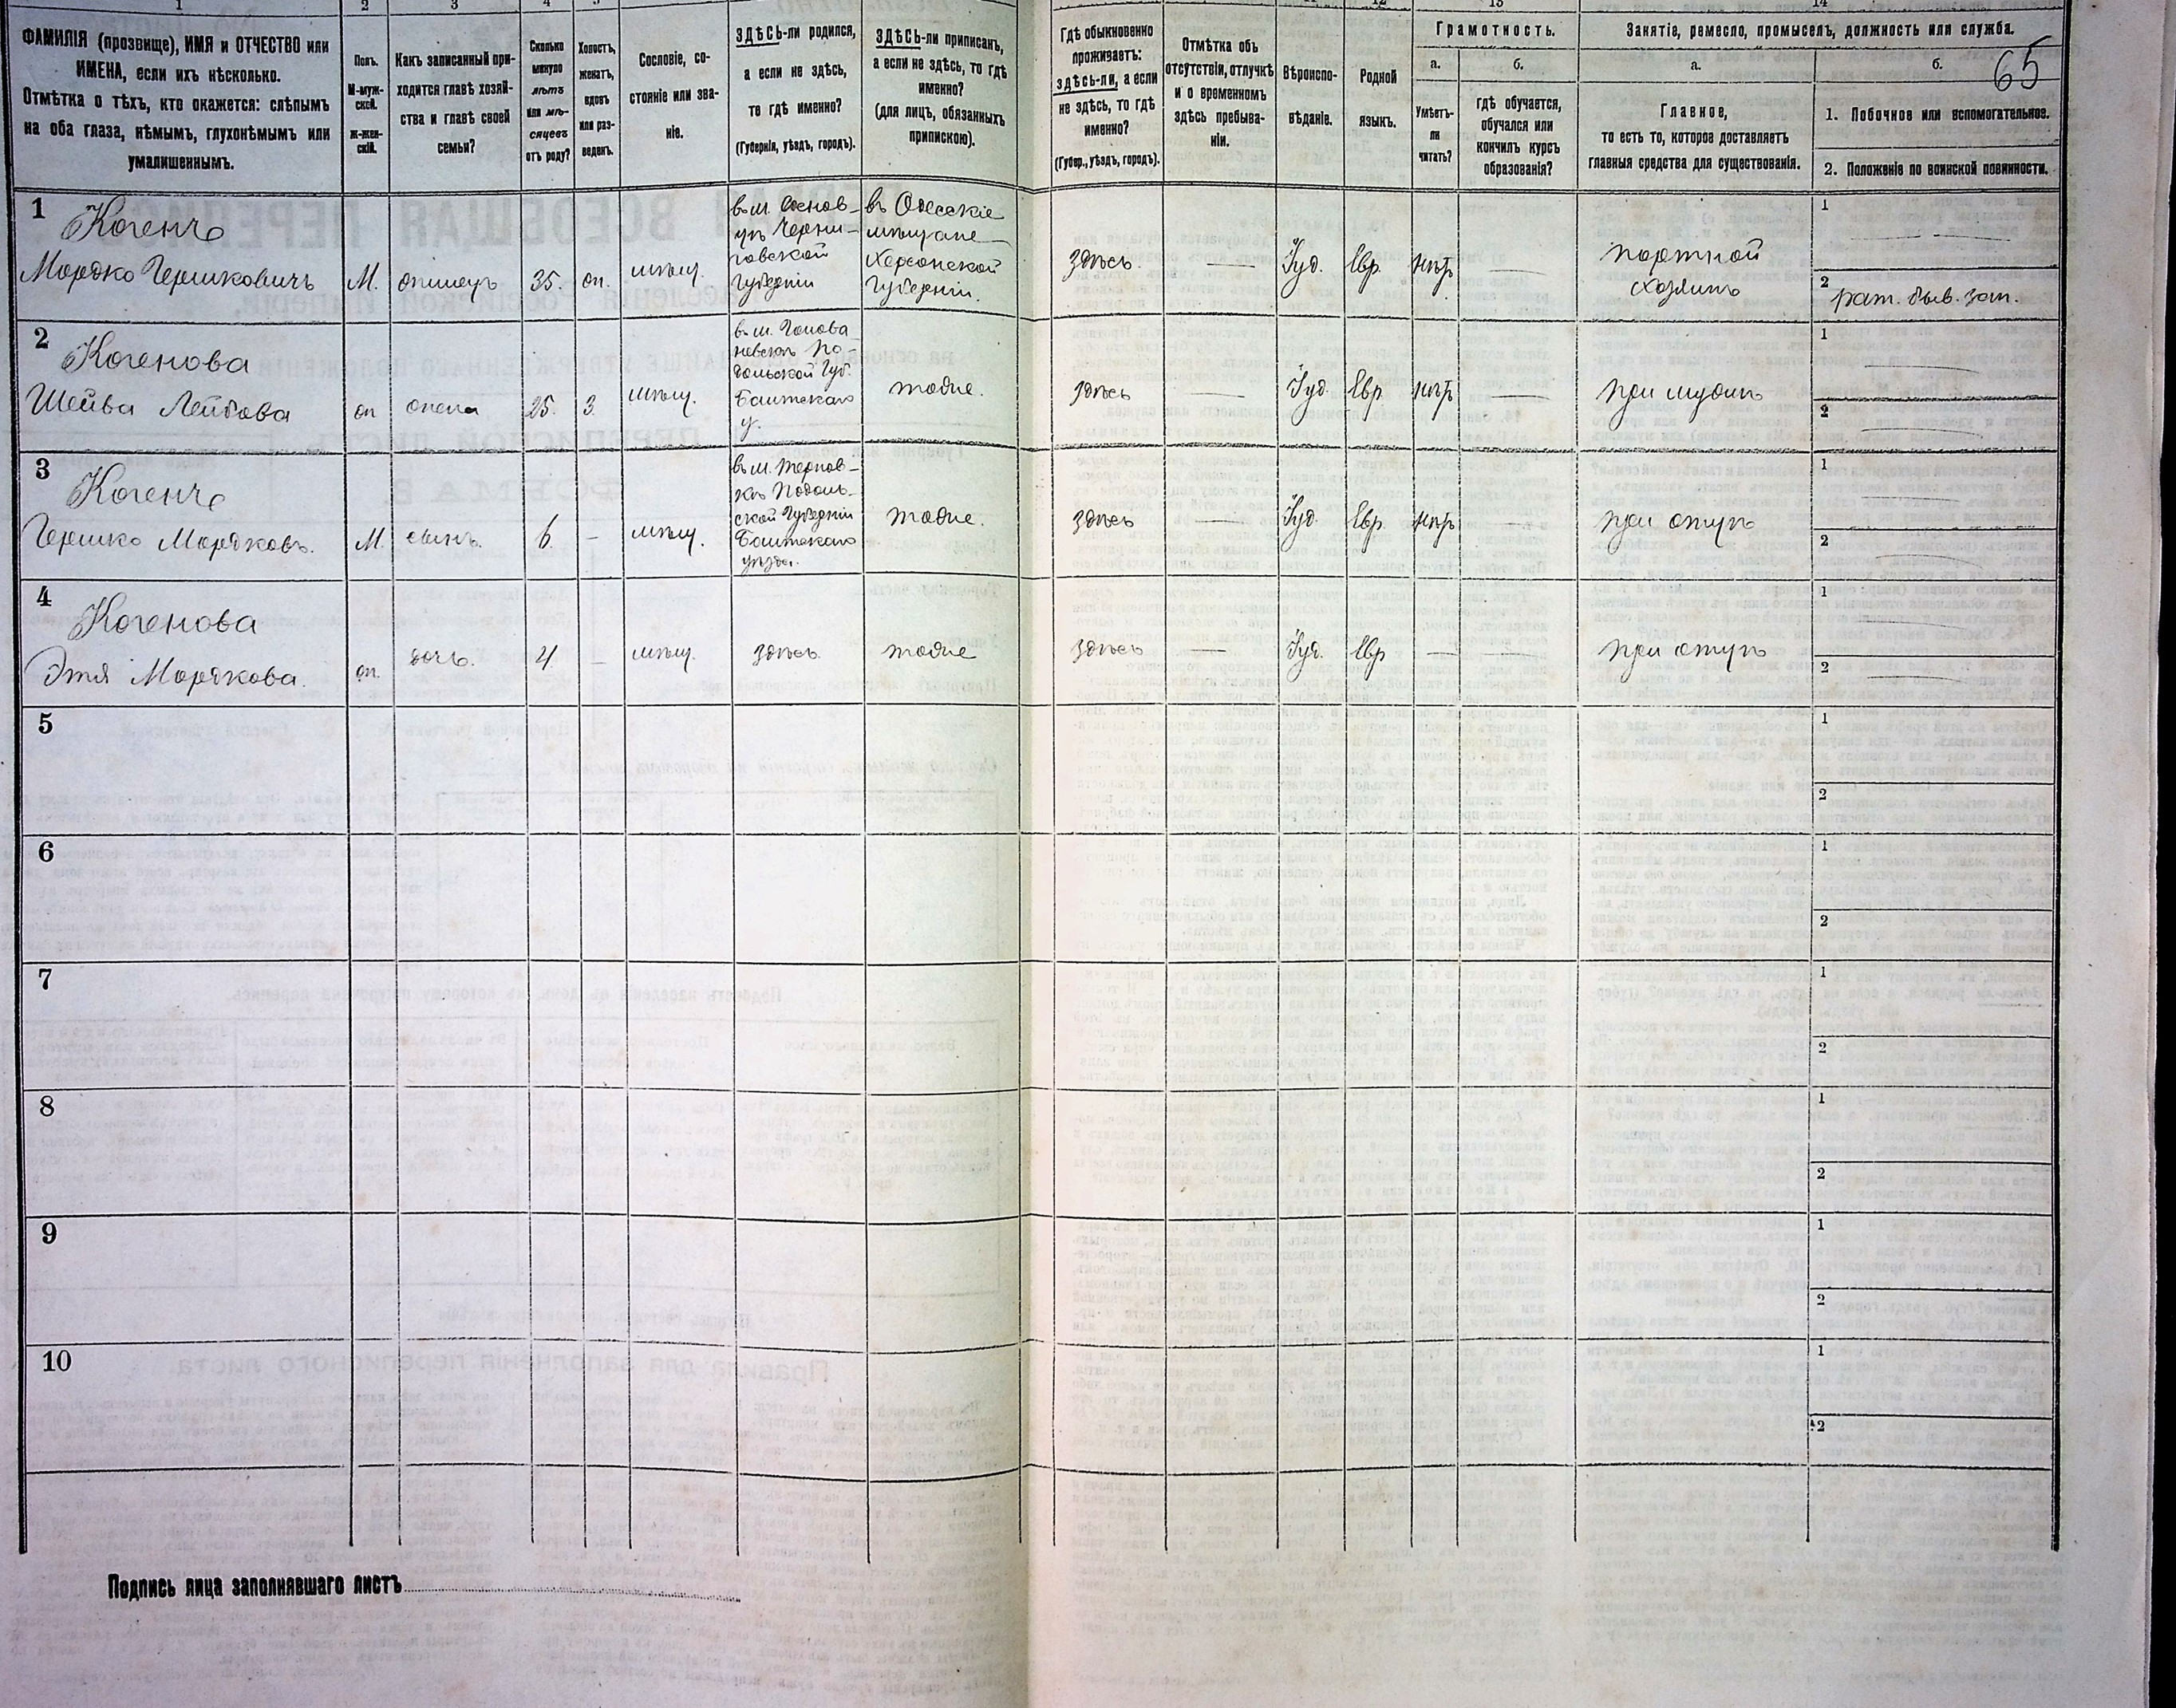 1 2 3 4 12 13 14
ФАМИЛІЯ (прозвище), ИМЯ и ОТЧЕСТВО или
ИМЕНА, если ихъ нѣсколько.
Отмѣтка о тѣхъ, кто окажется: слѣпымъ
на оба глаза, нѣмымъ, глухонѣмымъ или
умалишеннымъ.
Полъ.
М-муж-
ской.
ж-жен-
скій.
Какъ записанный при-
ходится главѣ хозяй-
ства и главѣ своей
семьи?
Сколько
минуло
лѣтъ
или мѣ-
сяцевъ
отъ роду?
Холостъ,
женатъ,
вдовъ
или раз-
веденъ.
Сословіе, со-
стояніе или зва-
ніе.
ЗДѢСЬ-ли родился,
а если не здѣсь,
то гдѣ именно?
(Губернія, уѣздъ, городъ).
ЗДѢСЬ-ли приписанъ,
а если не здѣсь, то гдѣ
именно?
(для лицъ, обязанныхъ
припискою).
Гдѣ обыкновенно
проживаетъ:
здѣсь-ли, а если
не здѣсь, то гдѣ
именно?
(Губер., уѣздъ, городъ).
Отмѣтка объ
отсутствіи, отлучкѣ
и о временномъ
здѣсь пребыва-
ніи.
Вѣроиспо-
вѣданіе.
Родной
языкъ.
Грамотность.
а.
Умѣетъ-
ли
читать?
б.
гдѣ обучается,
обучался или
кончилъ курсъ
образованія?
Занятіе, ремесло, промыселъ, должность или служба.
65
а.
Главное,
то есть то, которое доставляетъ
главныя средства для существованія.
б.
1. Побочное или вспомогательное.
2. Положеніе по воинской повинности.
1
Когенъ
Мордко Гершковичъ
М.
35.
мѣщ.
Черни-
говской
губерніи
въ Одесскіе
мѣщане
Херсонской
губерніи.
здѣсь.
Іуд.
Евр.
нѣтъ
портной
хозяинъ
1
2
рат. быв. зап.
2
Когенова
Шейва Лейбова
25.
З.
мѣщ.
Подольской Губ.
Балтскаго
у.
тоже.
здѣсь
Іуд.
Евр.
нѣтъ
при мужѣ
1
2
3
Когенъ
Гершко Мордковъ.
М.
сынъ.
6.
–
мѣщ.
въ м. Тернов-
кѣ Подоль-
ской Губерніи
Балтскаго
уѣзда.
тоже.
здѣсь
Іуд.
Евр.
нѣтъ
при отцѣ
1
2
4
Когенова
Этя Мордкова.
дочь.
4
–
мѣщ.
здѣсь.
тоже
здѣсь
Іуд.
Евр
при отцѣ
1
2
5
1
2
6
1
2
7
1
2
8
1
2
9
1
2
10
1
2
Подпись лица заполнявшаго листъ